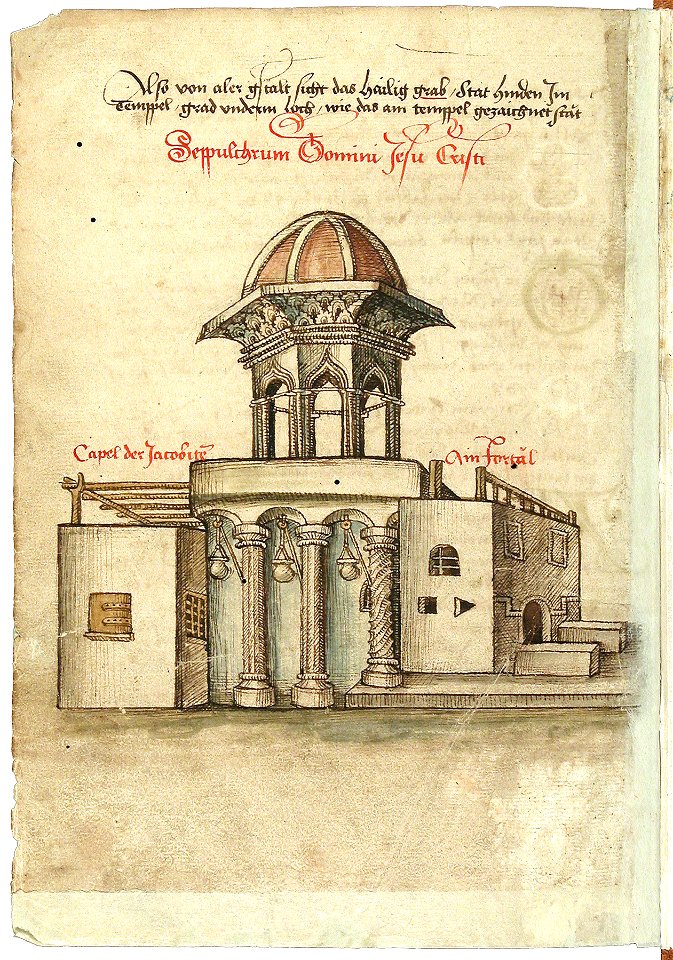 Also von aler gstalt sicht das hailig grab, Stat hinden Im
Temppel, grad vnderm loch, wie das am temppel gezaichnet stat
Seppulchrum Domini Jesu Cristi
Capel der Jacobite
Am Portal